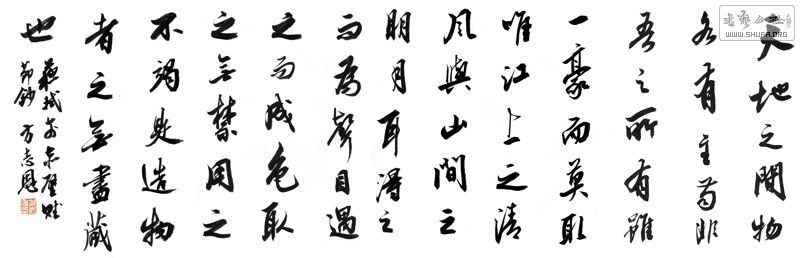 天地之間物
各有主苟非
吾之所有雖
一豪而莫取
唯江上之清
風與山間之
明月耳得之
而為聲目遇
之而成色取
之無禁用之
不竭是造物
者之無盡藏
也
蘇軾前赤壁賦
節鈔 方志恩
書藝公社
WWW.SHUFA.ORG